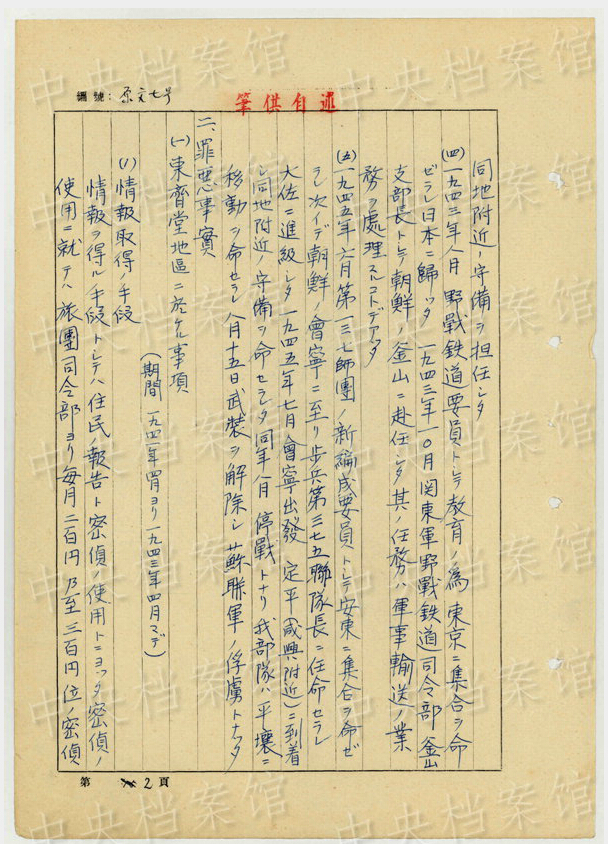 編號：原文七号
筆供自述
同地附近ノ守備ヲ担任シタ
(四)一九四三年八月 野戰鉄道要員トシテ教育ノ為東京ニ集合ヲ命
ゼラレ日本ニ歸ッタ 一九四三年一〇月関東軍野戰鉄道司令部釜山
支部長トシテ朝鮮ノ釜山ニ赴任シタ其ノ任務ハ軍事輸送ノ業
務ヲ処理スルコトデアッタ
(五)一九四五年六月第一三七師團ノ新編成要員トシテ安東ニ集合ヲ命ゼ
ラレ次イデ朝鮮ノ會寧ニ至リ歩兵第三七五聯隊長ニ任命セラレ
大佐ニ進級シタ一九四五年七月會寧出發 定平(咸興附近)ニ到着
シ同地附近ノ守備ヲ命セラレタ同年八月 停戰トナリ我部隊ハ平壤ニ
移動ヲ命セラレ八月十五日武装ヲ解除シ蘇聯軍ノ俘虜トナッタ
二、罪惡事實
(一)東齊堂地區ニ於ケル事項
(期間 一九四二年四月ヨリ一九四三年四月マデ)
(1)情報取得ノ手段
情報ヲ得ル手段トシテハ住民ノ報告ト密偵ノ使用トニヨッタ密偵ノ
使用ニ就テハ旅團司令部ヨリ毎月二百円乃至三百円位ノ密偵
第 2 頁
中央档案馆